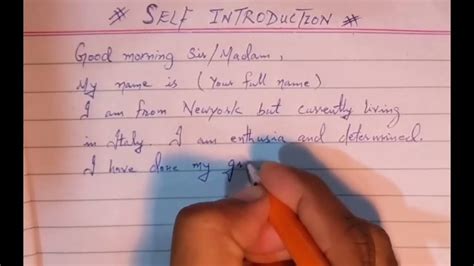 * SELF INTRODUCTION *
Good morning Sir/Madam,
My name is (Your full name)
I am from Newyork but currently living
in Italy. I am enthusia and determined.
I have done my gr